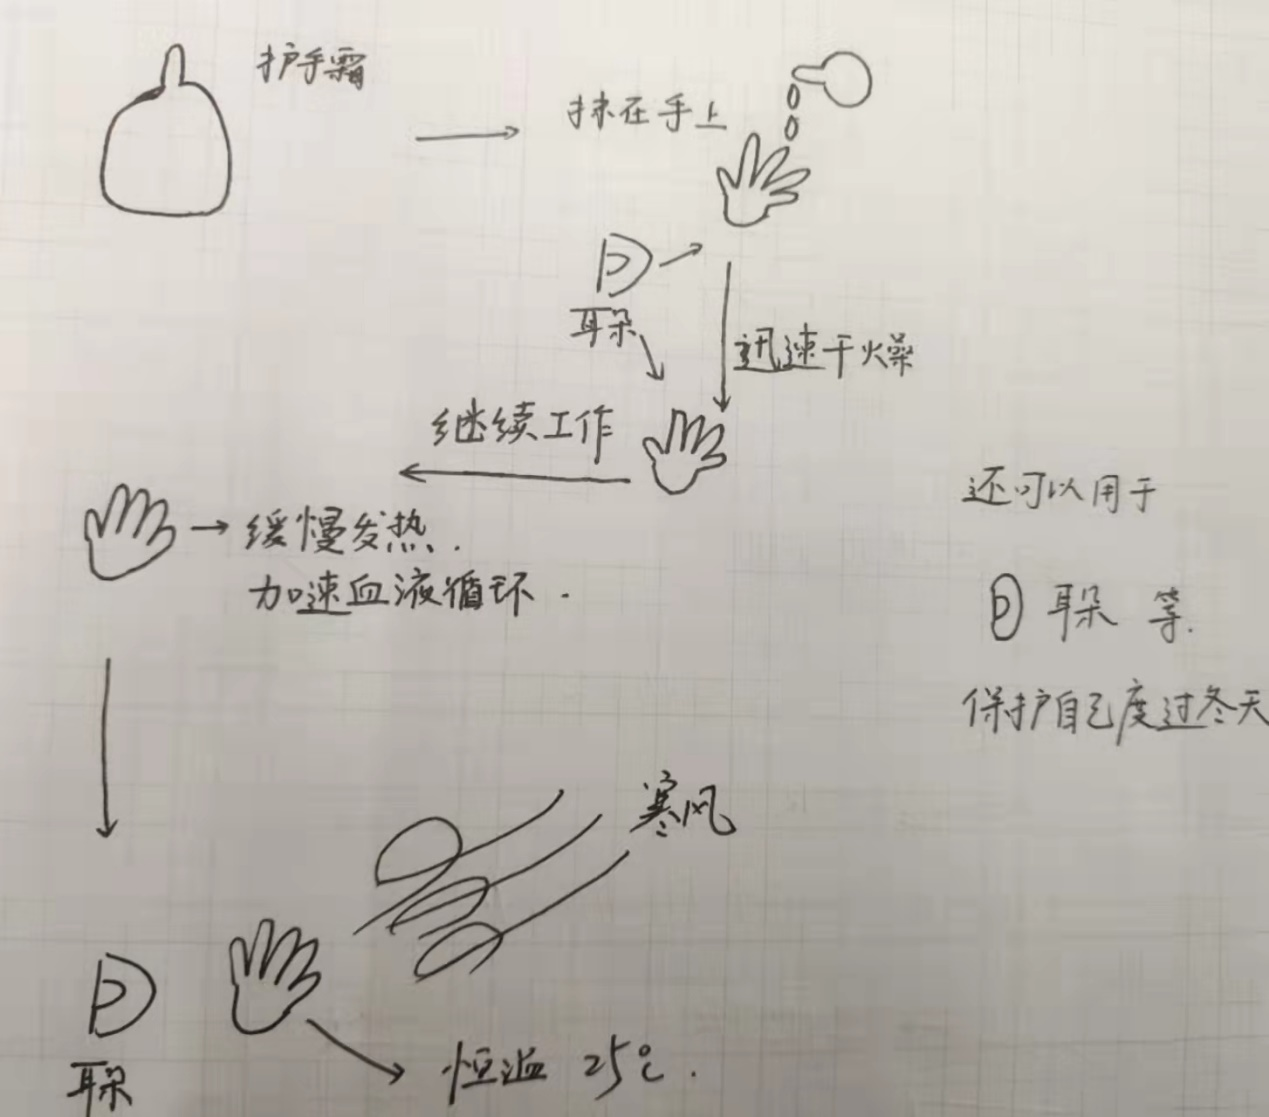 护手霜
抹在手上
耳朵
迅速干燥
继续工作
缓慢发热.
加速血液循环.
还可以用于
耳朵 等.
保护自己度过冬天
寒风
耳朵
恒温 25℃.